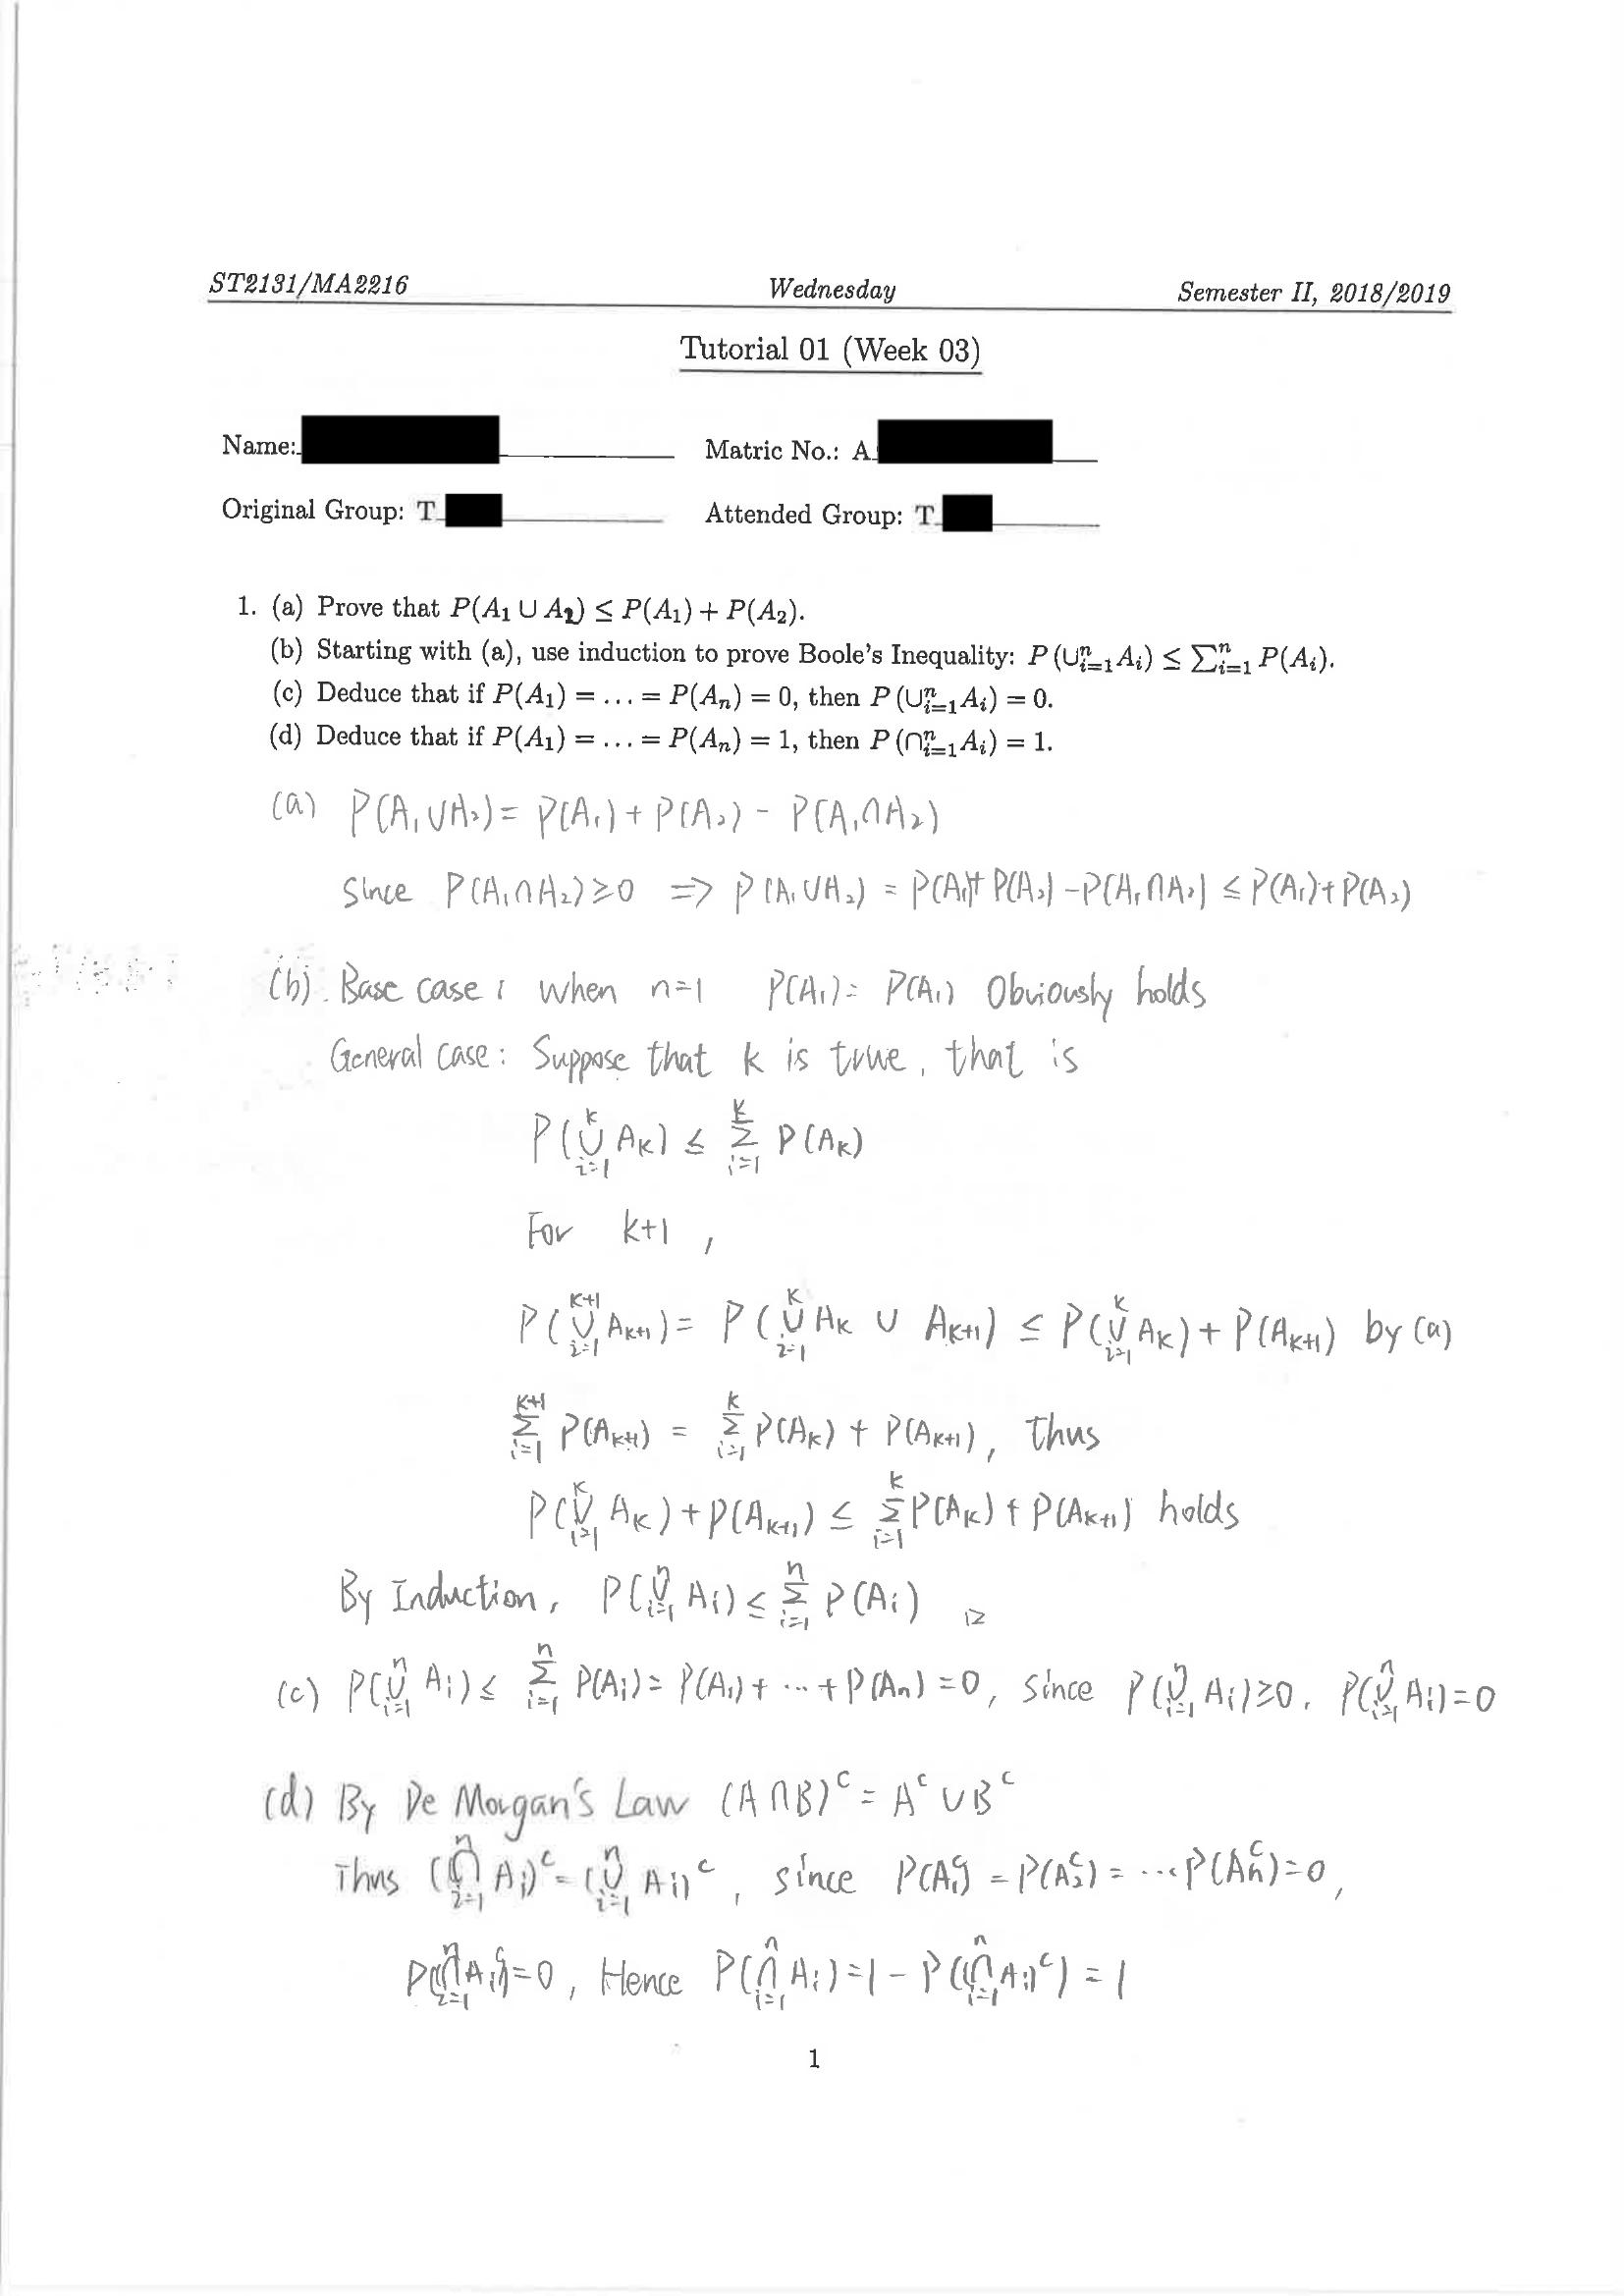 ST2131/MA2216 Wednesday Semester II, 2018/2019
Tutorial 01 (Week 03)
Name: Matric No.: A
Original Group: T Attended Group: T
1. (a) Prove that P(A₁ ∪ A₂) ≤ P(A₁) + P(A₂).
(b) Starting with (a), use induction to prove Boole's Inequality: P (∪ⁿᵢ₌₁Aᵢ) ≤ ∑ⁿᵢ₌₁ P(Aᵢ).
(c) Deduce that if P(A₁) = ... = P(Aₙ) = 0, then P (∪ⁿᵢ₌₁Aᵢ) = 0.
(d) Deduce that if P(A₁) = ... = P(Aₙ) = 1, then P (∩ⁿᵢ₌₁Aᵢ) = 1.
(a) P(A₁∪A₂) = P(A₁) + P(A₂) - P(A₁∩A₂)
Since P(A₁∩A₂) ≥ 0 => P(A₁∪A₂) = P(A₁)+ P(A₂) - P(A₁∩A₂) ≤ P(A₁)+P(A₂)
(b). Base case : when n=1 P(A₁) = P(A₁) Obviously holds
General case: Suppose that k is true, that is
P(∪ᵏᵢ₌₁ Aₖ) ≤ ∑ᵏᵢ₌₁ P(Aₖ)
For k+1 ,
P(∪ᵏ⁺¹ᵢ₌₁ Aₖ₊₁) = P(∪ᵏᵢ₌₁ Aₖ ∪ Aₖ₊₁) ≤ P(∪ᵏᵢ₌₁ Aₖ) + P(Aₖ₊₁) by (a)
∑ᵏ⁺¹ᵢ₌₁ P(Aₖ₊₁) = ∑ᵏᵢ₌₁ P(Aₖ) + P(Aₖ₊₁), thus
P(∪ᵏᵢ₌₁ Aₖ) + P(Aₖ₊₁) ≤ ∑ᵏᵢ₌₁ P(Aₖ) + P(Aₖ₊₁) holds
By Induction, P(∪ⁿᵢ₌₁ Aᵢ) ≤ ∑ⁿᵢ₌₁ P(Aᵢ)
(c) P(∪ⁿᵢ₌₁ Aᵢ) ≤ ∑ⁿᵢ₌₁ P(Aᵢ) = P(A₁) + ... + P(Aₙ) = 0, since P(∪ⁿᵢ₌₁ Aᵢ) ≥ 0, P(∪ⁿᵢ₌₁ Aᵢ) = 0
(d) By De Morgan's Law (A∩B)ᶜ = Aᶜ ∪ Bᶜ
Thus (∩ⁿᵢ₌₁ Aᵢ)ᶜ = (∪ⁿᵢ₌₁ Aᵢ)ᶜ, since P(A₁ᶜ) = P(A₂ᶜ) = ... P(Aₙᶜ) = 0,
P((∩ⁿᵢ₌₁ Aᵢ)ᶜ) = 0, Hence P(∩ⁿᵢ₌₁ Aᵢ) = 1 - P((∩ⁿᵢ₌₁ Aᵢ)ᶜ) = 1
1